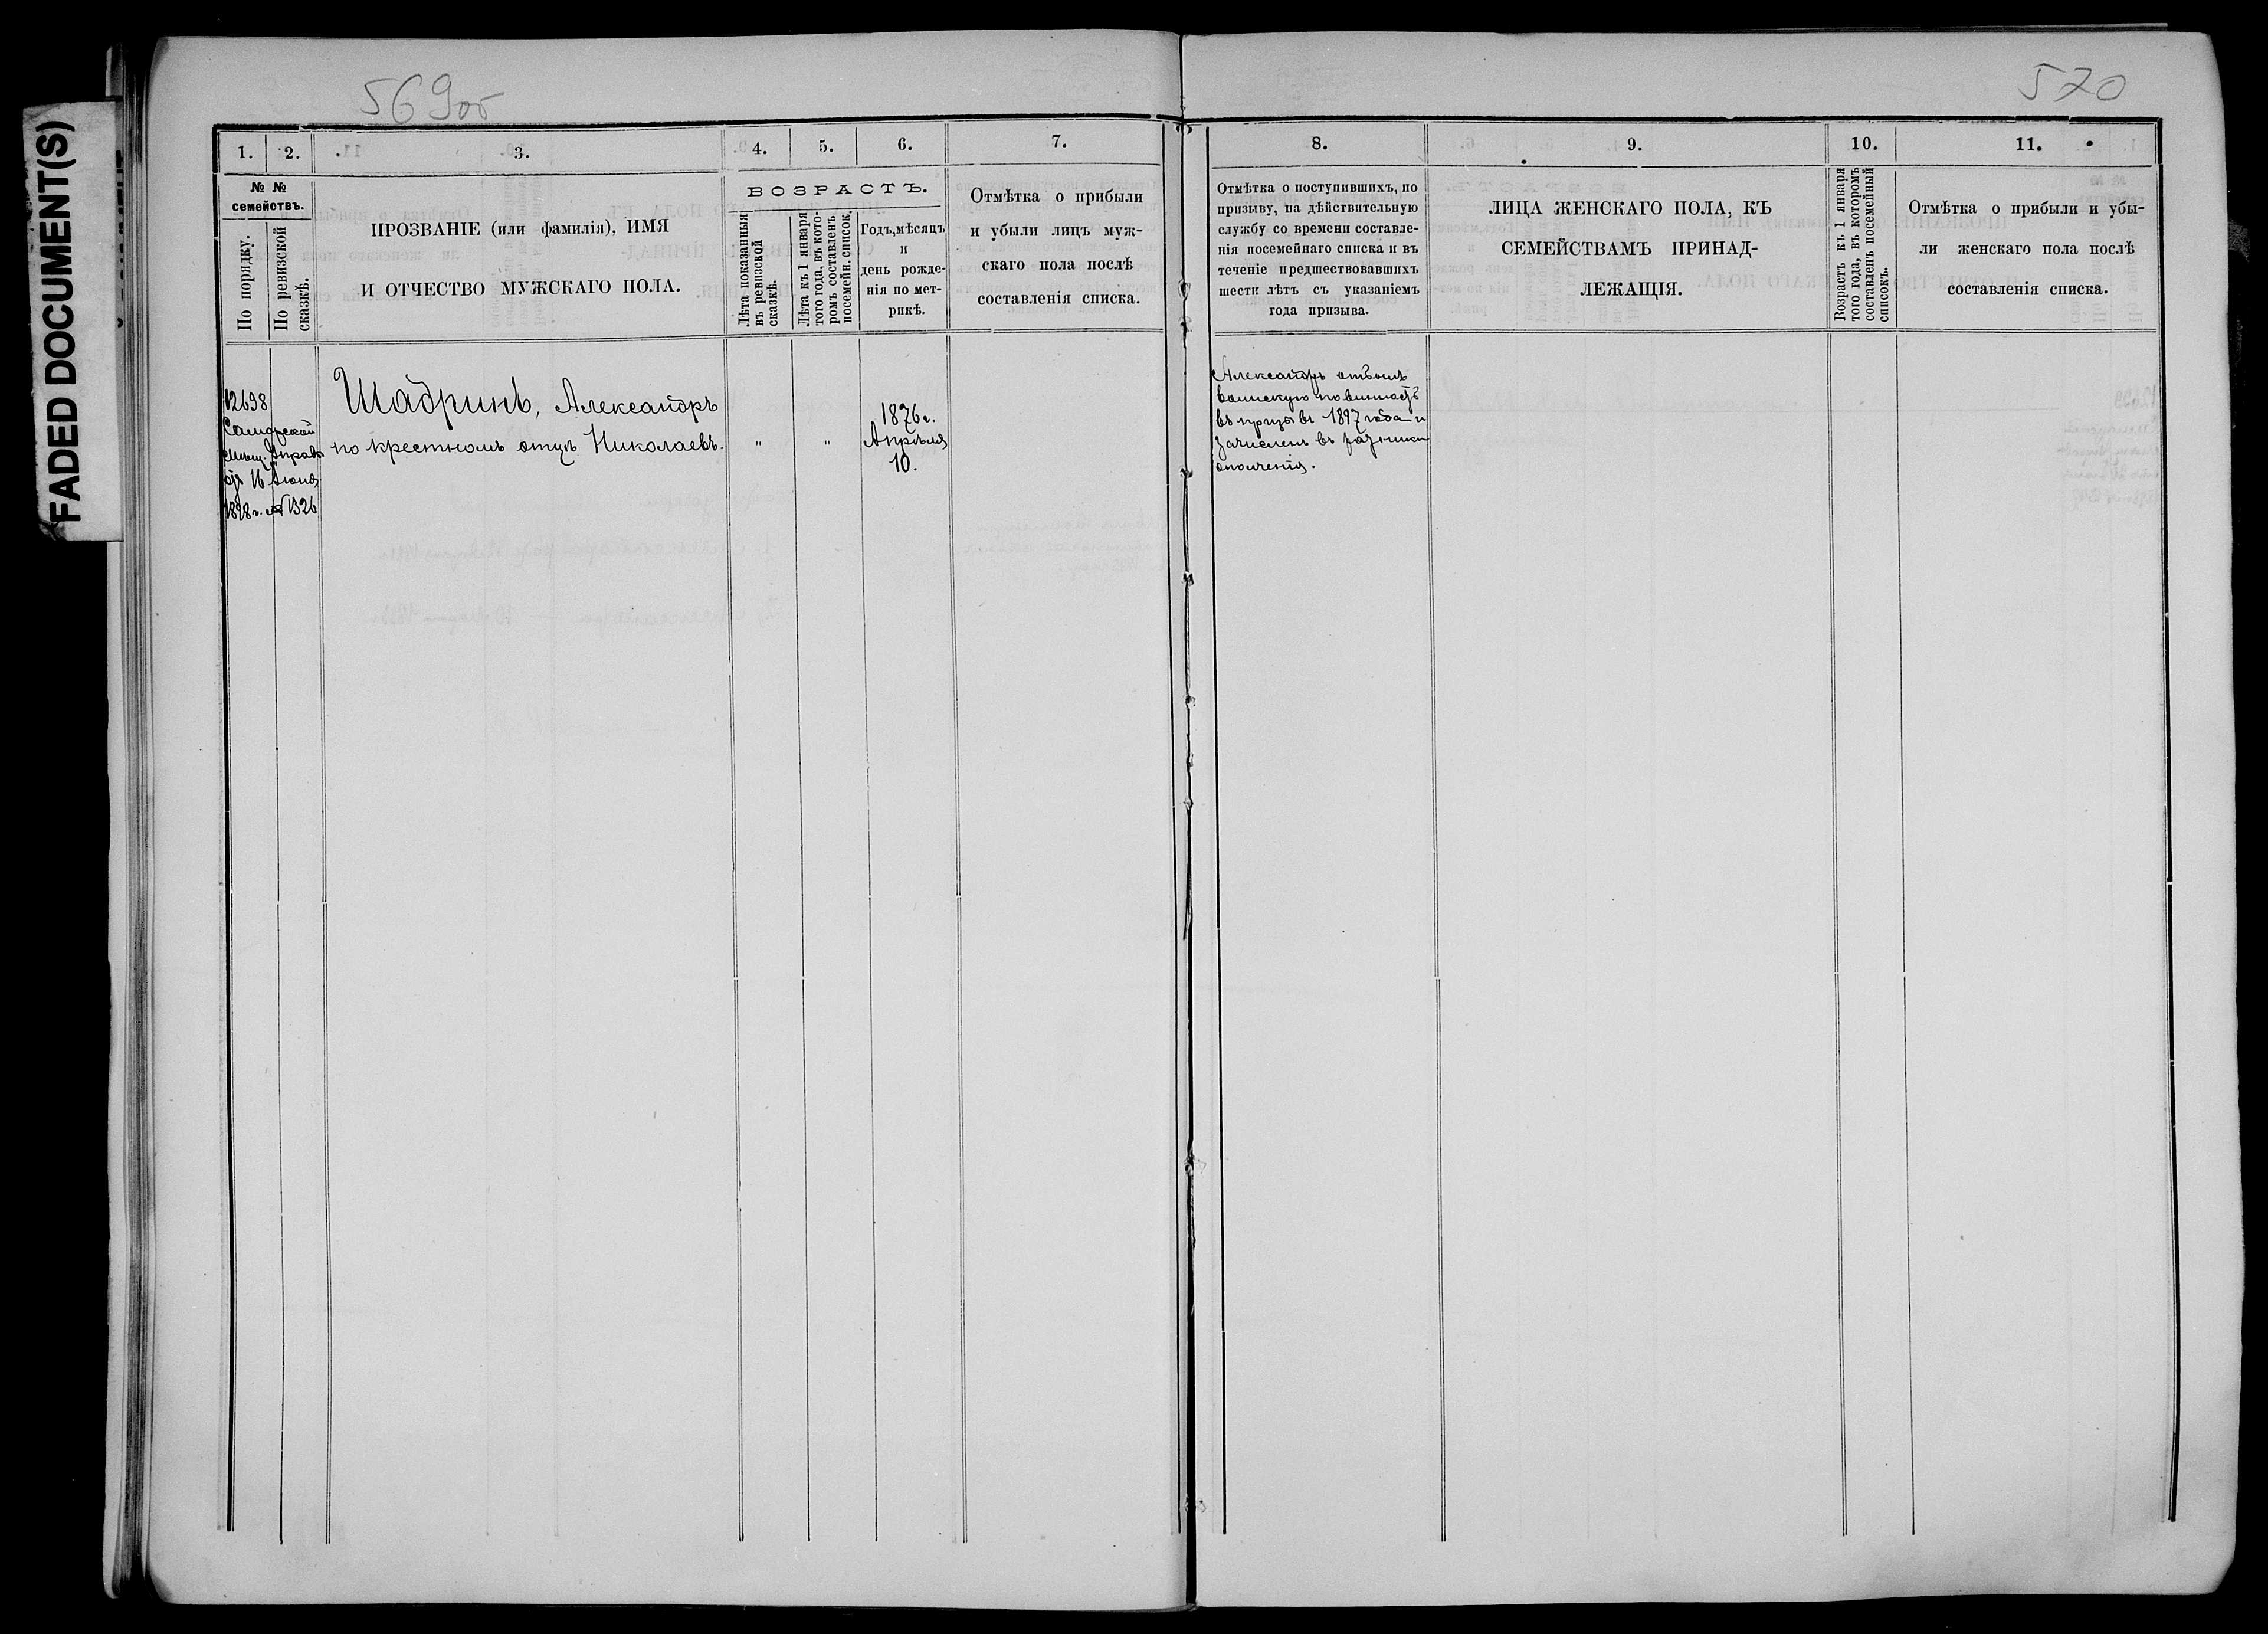 FADED DOCUMENT(S)
569об
570
1.
2.
3.
4.
5.
6.
7.
8.
9.
10.
11.
№ №
семействъ.
По порядку.
По ревизской
сказкѣ.
ПРОЗВАНІЕ (или фамилія), ИМЯ
И ОТЧЕСТВО МУЖСКАГО ПОЛА.
ВОЗРАСТЪ.
Лѣта показанныя
въ ревизской
сказкѣ.
Лѣта къ 1 января
того года, въ кото-
ромъ составленъ
посемейн. список.
Годъ, мѣсяцъ
и
день рожде-
нія по мет-
рикѣ.
Отмѣтка о прибыли
и убыли лицъ муж-
скаго пола послѣ
составленія списка.
Отмѣтка о поступившихъ, по
призыву, на дѣйствительную
службу со времени составле-
нія посемейнаго списка и въ
теченіе предшествовавшихъ
шести лѣтъ съ указаніемъ
года призыва.
ЛИЦА ЖЕНСКАГО ПОЛА, КЪ
СЕМЕЙСТВАМЪ ПРИНАД-
ЛЕЖАЩІЯ.
Возрастъ къ 1 января
того года, въ которомъ
составленъ посемейный
списокъ.
Отмѣтка о прибыли и убы-
ли женскаго пола послѣ
составленія списка.
12698
Самарской
Мѣщ. Управы
отъ 16 Іюня
1898 г. № 1326
Шадринъ, Александръ
по крестномъ отцѣ Николаевъ.
"
"
1876 г.
Апрѣля
10.
Александръ отбылъ
воинскую повинность
въ призывъ 1897 года и
зачисленъ въ ратники
ополченія.